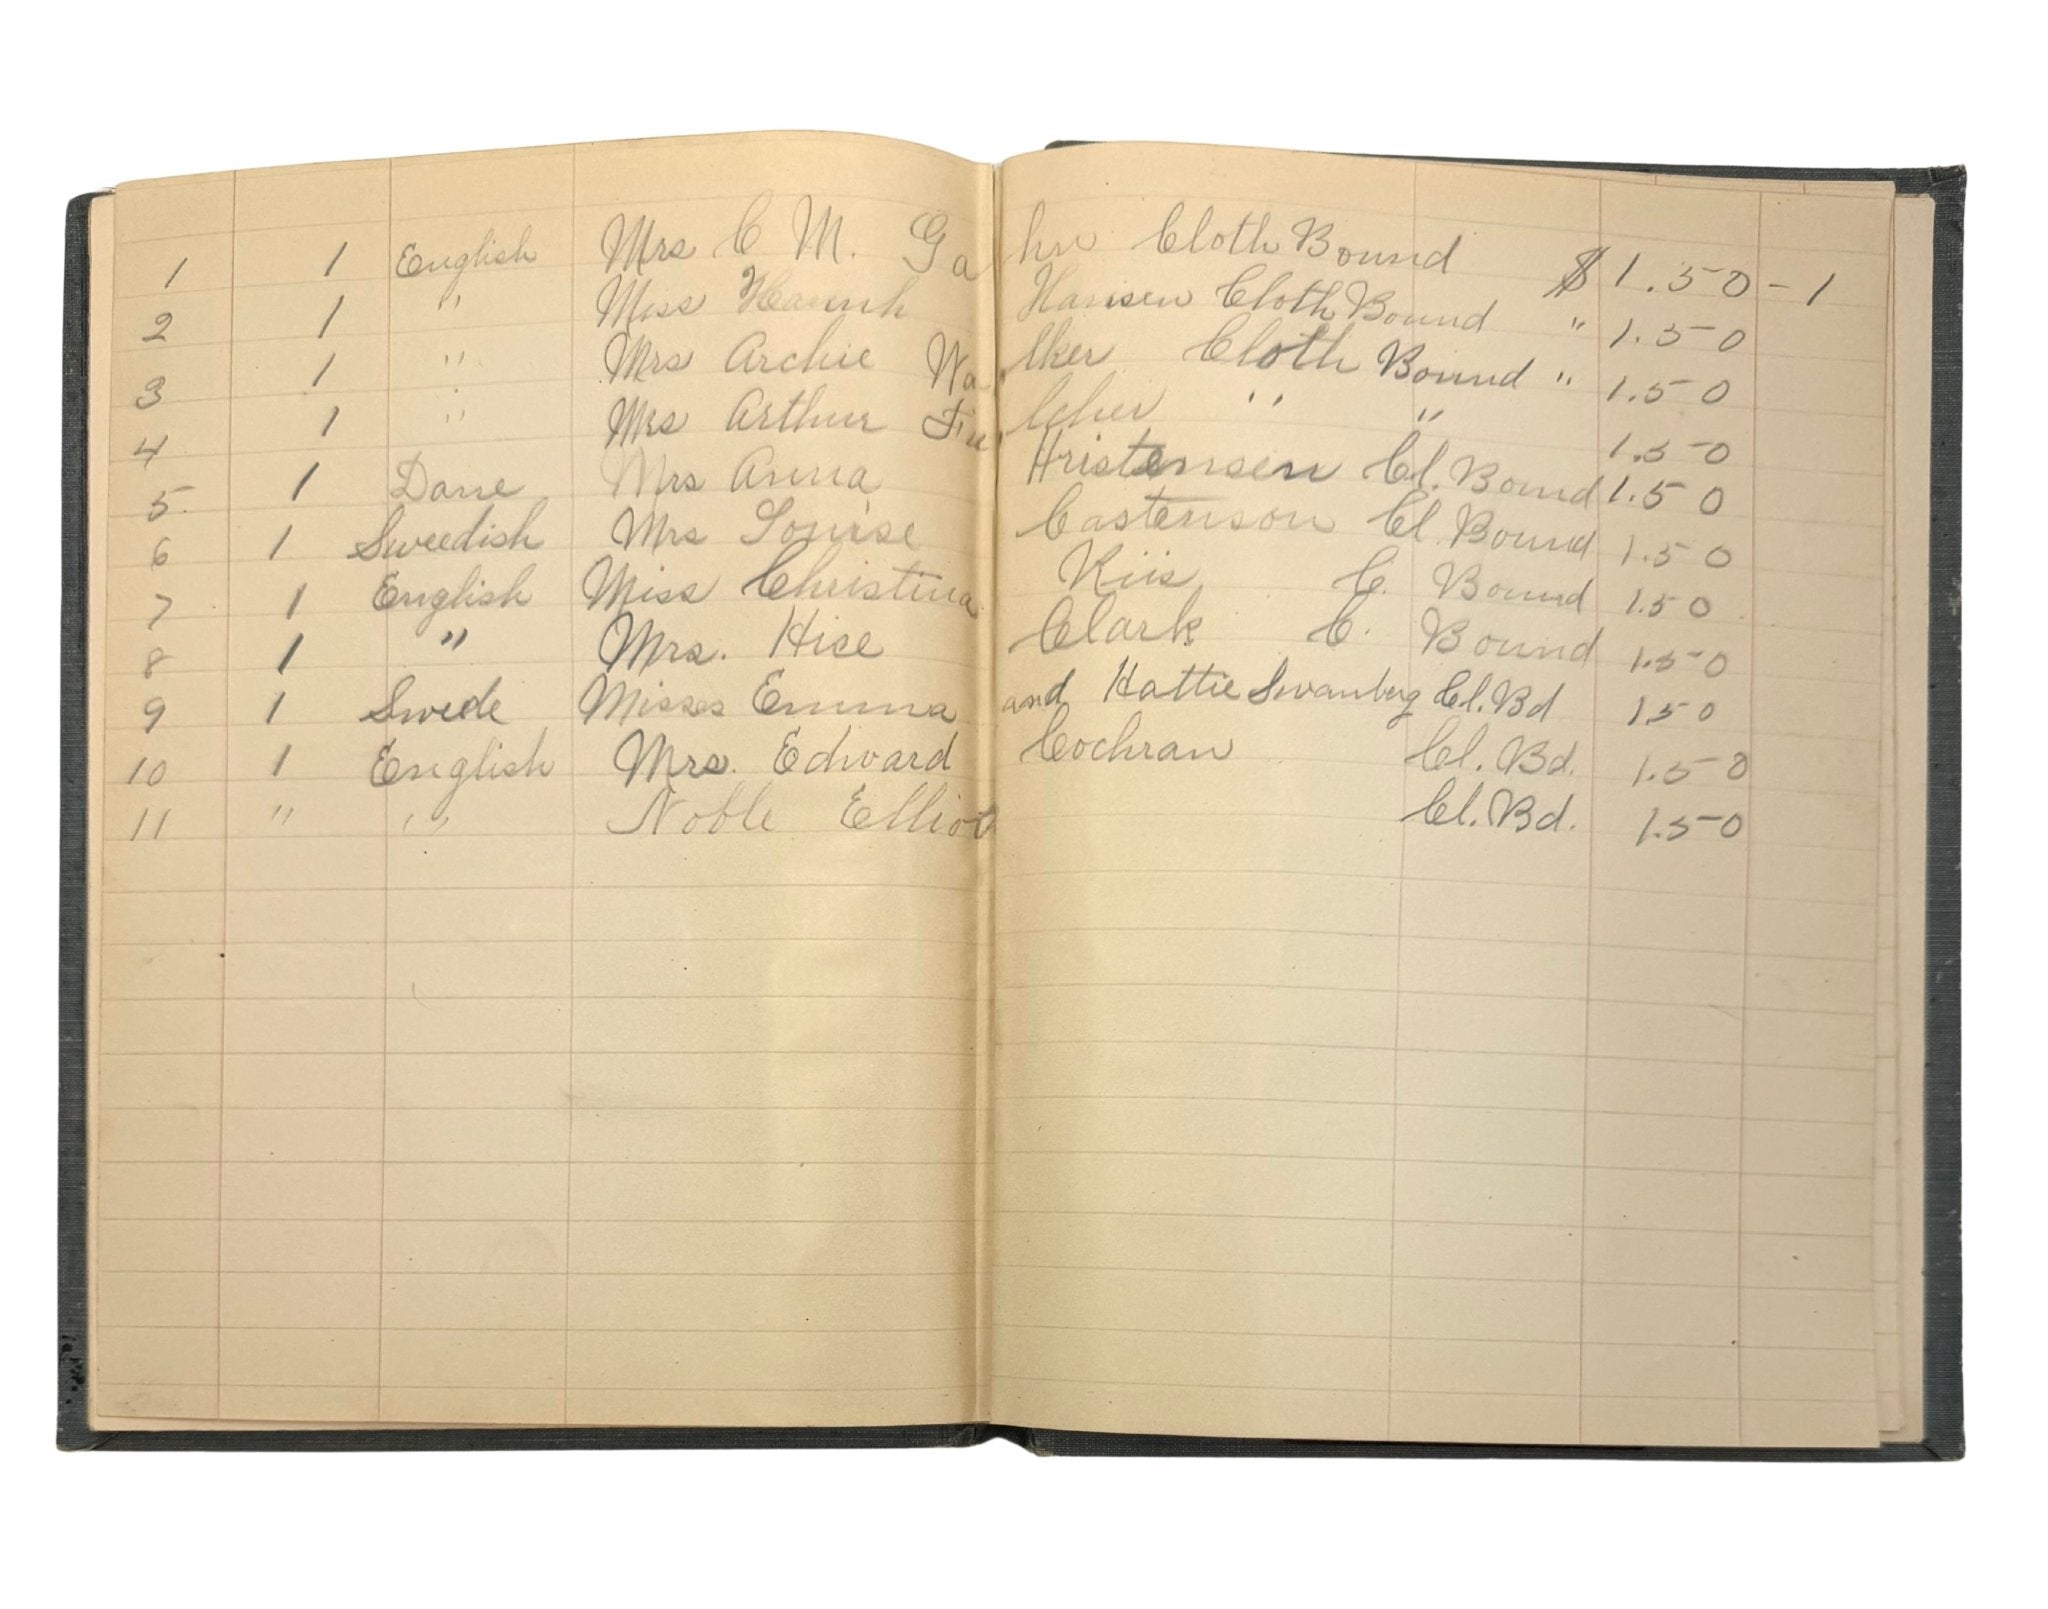 1 1 English Mrs C M. Gahn Cloth Bound $1.50 - 1
2 1 " Miss Hannh Hansen Cloth Bound " 1.50
3 1 " Mrs Archie Walker Cloth Bound " 1.50
4 1 " Mrs Arthur " " 1.50
5 1 Dane Mrs Anna Hristensen Cl. Bound 1.50
6 1 Swedish Mrs Louise Castenson Cl. Bound 1.50
7 1 English Miss Christina Kiis C. Bound 1.50
8 1 " Mrs. Hise Clark C. Bound 1.50
9 1 Swede Misses Emma and Hattie Swanberg Cl. Bd 1.50
10 1 English Mrs. Edward Cochran Cl. Bd. 1.50
11 " " Noble Elliot Cl. Bd. 1.50